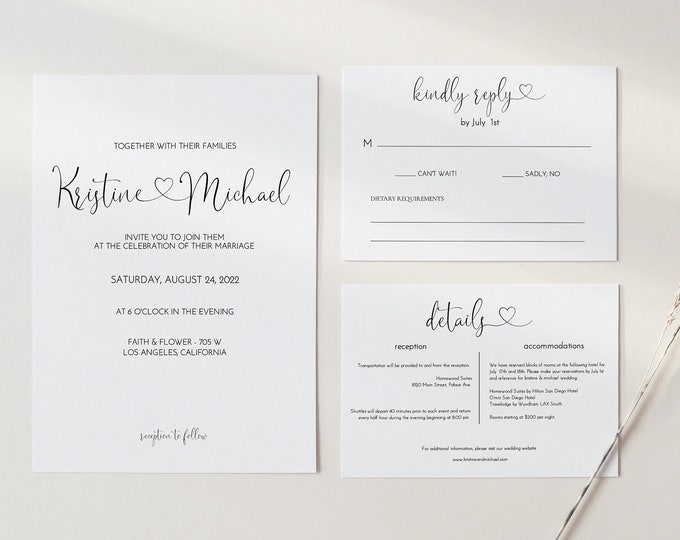 TOGETHER WITH THEIR FAMILIES
Kristine Michael
INVITE YOU TO JOIN THEM
AT THE CELEBRATION OF THEIR MARRIAGE
SATURDAY, AUGUST 24, 2022
AT 6 O'CLOCK IN THE EVENING
FAITH & FLOWER - 705 W
LOS ANGELES, CALIFORNIA
reception to follow
kindly reply
by July 1st
M
CAN'T WAIT! SADLY, NO
DIETARY REQUIREMENTS
details
reception
Transportation will be provided to and from the reception.
Homewood Suites
8120 Main Street, Palace Ave.
Shuttles will depart 40 minutes prior to each event and return
every half hour during the evening beginning at 8:00 pm
accommodations
We have reserved blocks of rooms at the following hotel for
July 17th and 18th. Please make your reservations by July 1st
and reference for kristine & michael wedding.
Homewood Suites by Hilton San Diego Hotel
Omni San Diego Hotel
Travelodge by Wyndham LAX South
Rooms starting at $200 per night.
For additional information, please visit our wedding website
www.kristineandmichael.com